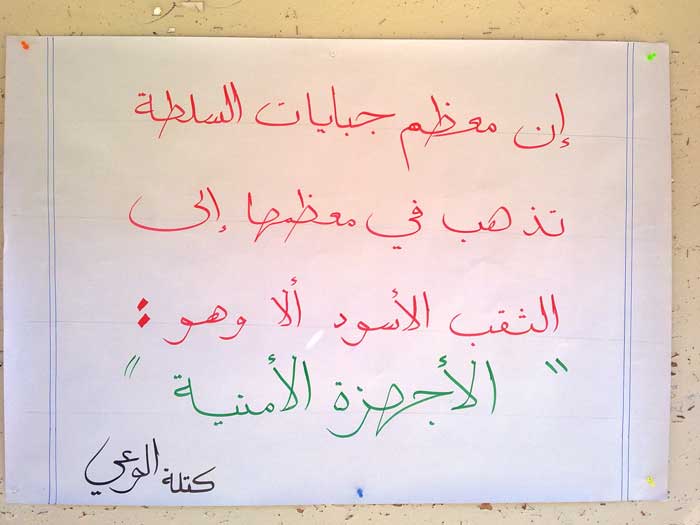 إن معظم جبايات السلطة
تذهب في معظمها إلى
الثقب الأسود ألا وهو :
" الأجهزة الأمنية "
كتلة الوعي